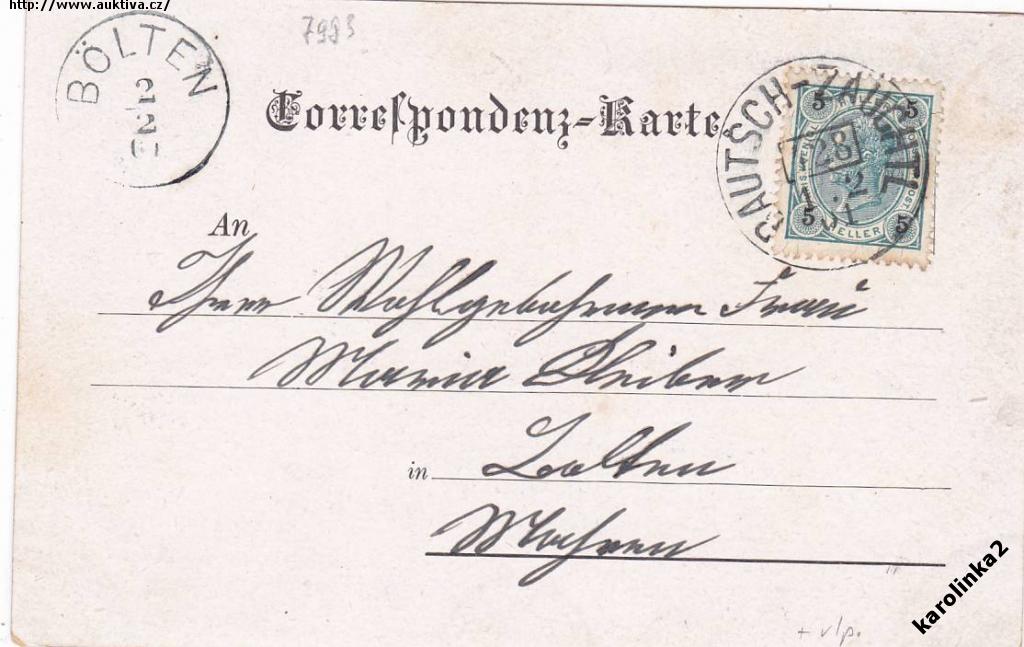 http://www.auktiva.cz/
7993
BÖLTEN
2
2
Correspondenz-Karte
BAUTSCH-ZAUCHTL
28
1 2
5 5
5 HELLER 5
An
Ihrer Wohlgebohrenen Frau
Maria
in Bölten
Mähren
+ vlp.
karolinka2